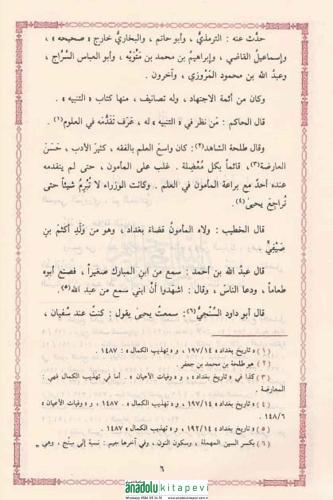 حدَّث عنه : الترمذيُّ ، وأبو حاتم ، والبخاريُّ خارج « صحيحه » ،
وإسماعيلُ القاضي ، وإبراهيم بن محمد بن مَتُّويه ، وأبو العباس السَّرَّاج ،
وعبدُ الله بن محمود المَرْوزي ، وآخرون .
وكان من أئمة الاجتهاد ، وله تصانيف ، منها كتاب « التنبيه » .
قال الحاكم : مَن نظر في « التنبيه » له ، عَرَف تَقَدُّمَه في العلوم(١) .
قال طلحة الشاهد(٢) : كان واسعَ العلم بالفقه ، كثيرَ الأدب ، حَسَنَ
العارضة(٣) ، قائماً بكل مُعْضِلة . غلب على المأمون ، حتى لم يتقدمه
عنده أحدٌ مع براعة المأمون في العلم . وكانت الوزراء لا تُبْرِمُ شيئاً حتى
تُراجعَ يحيى(٤) .
قال الخطيب : ولاه المأمونُ قضاءَ بغداد ، وهو من وَلَدِ أكثمَ بنِ
صَيْفيٍّ
قال عبدُ الله بن أحمد : سمع من ابنِ المبارك صغيراً ، فصنع أبوه
طعاماً ، ودعا الناسَ ، وقال : اشهَدُوا أنَّ ابني سمع من عبد الله(٥) .
قال أبو داود السِّنْجيُّ(٦) : سمعتُ يحيى يقول : كنتُ عند سُفيان ،
(١) « تاريخ بغداد » ١٩٧/١٤ ، و « تهذيب الكمال » : ١٤٨٧ .
(٢) هو طلحة بن محمد بن جعفر .
(٣) كذا في « تاريخ بغداد » ، و « وفيات الأعيان » . أما في تهذيب الكمال فهي :
المعارضة
(٤) « تاريخ بغداد » ١٩٧/١٤ ، و « تهذيب الكمال » : ١٤٨٧ ، و « وفيات الأعيان »
١٤٨/٦ .
(٥) « تاريخ بغداد » ١٩٧/١٤ ، و « تهذيب الكمال » : ١٤٨٧ .
(٦) بكسر السين المهملة ، وسكون النون ، وفي آخرها جيم : نسبة إلى سِنْج ، وهي =
٦
anadolukitapevi